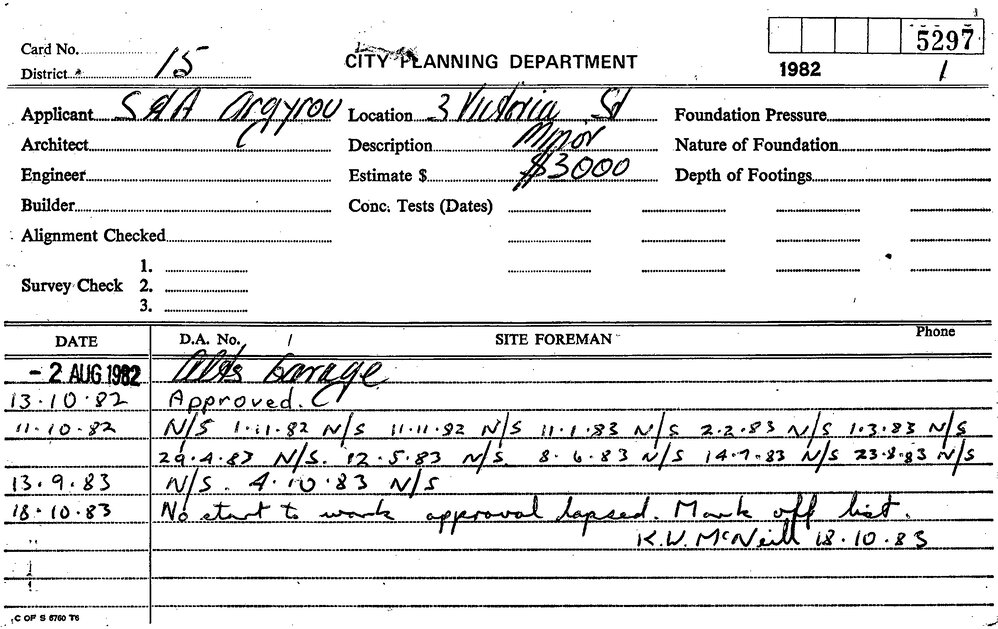 5297
Card No.
CITY PLANNING DEPARTMENT
District 15
1982 1
Applicant S & A Argyrou Location 3 Victoria St Foundation Pressure
Architect Description Minor Nature of Foundation
Engineer Estimate $ $3000 Depth of Footings
Builder Conc. Tests (Dates)
Alignment Checked
1.
Survey Check 2.
3.
DATE D.A. No. SITE FOREMAN Phone
- 2 AUG 1982 Alts Garage
13.10.82 Approved.
11.10.82 N/S 1.11.82 N/S 11.11.82 N/S 11.1.83 N/S 2.2.83 N/S 1.3.83 N/S
29.4.83 N/S. 12.5.83 N/S. 8.6.83 N/S 14.7.83 N/S 23.8.83 N/S
13.9.83 N/S. 4.10.83 N/S
18.10.83 No start to work approval lapsed. Mark off list.
K.W. McNeill 18.10.83
C OF S 5760 T6